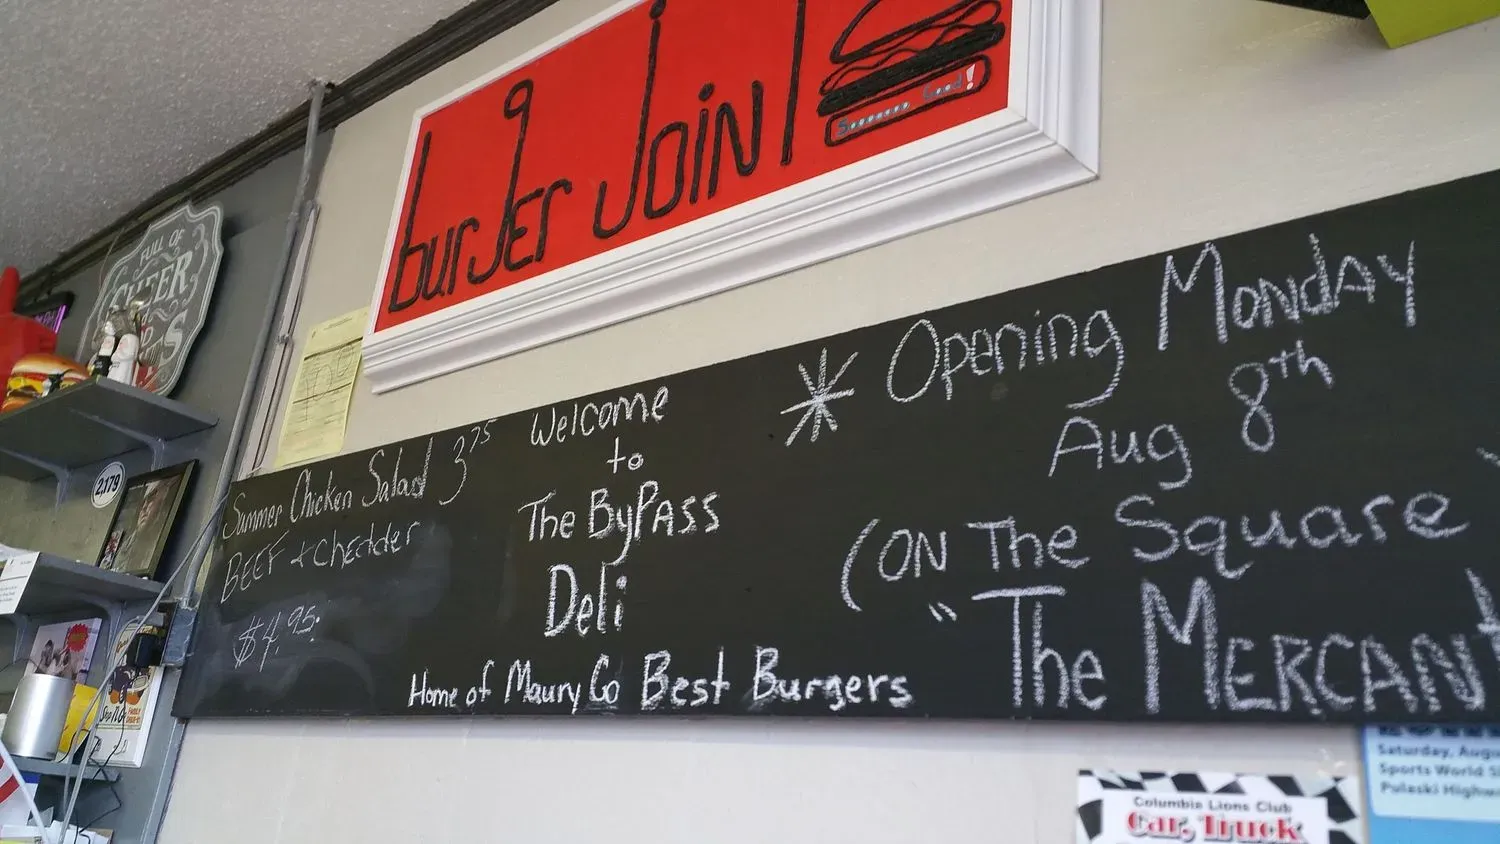 burger Joint
S....... Good!
FULL OF
CHEER
2,179
Summer Chicken Salad 3.75
BEEF + Chedder
$4.95
Welcome
to
The ByPass
Deli
Home of Maury Co Best Burgers
* Opening Monday
Aug 8th
(ON The Square
"The MERCANT
Columbia Lions Club
Car, Truck
Saturday, Augu
Sports World S
Pulaski Highw